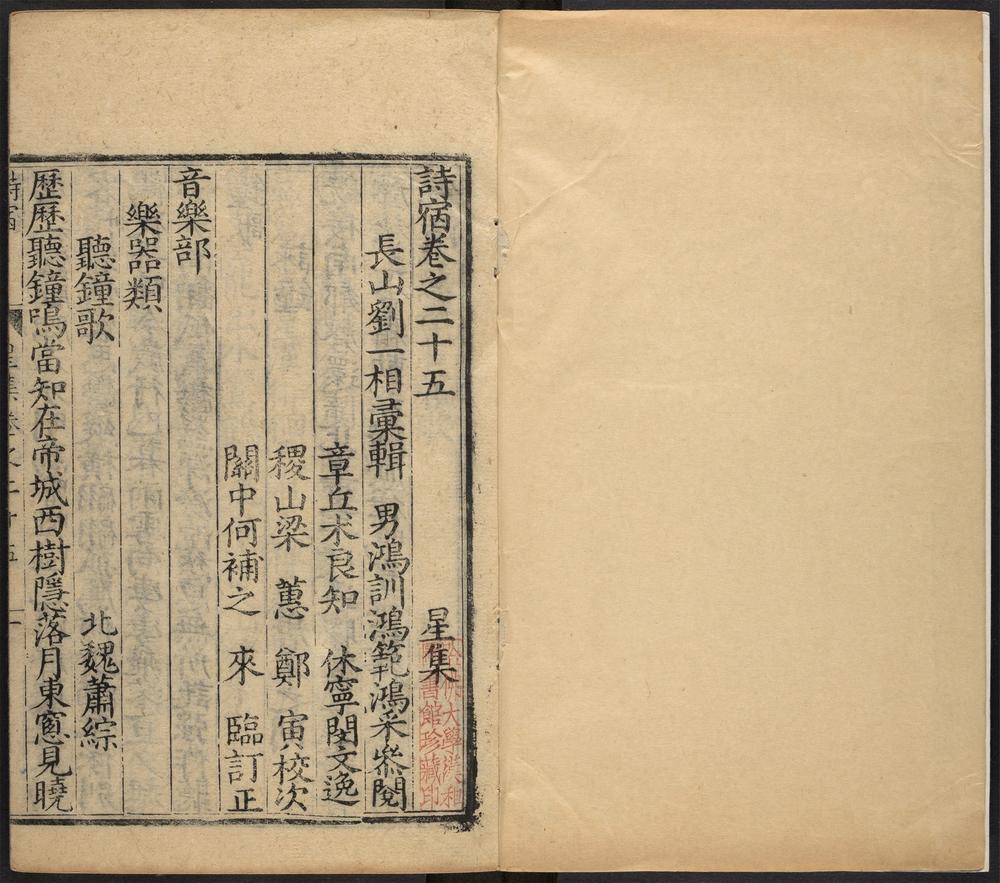 詩宿卷之二十五　星集
長山劉一相彙輯　男鴻訓鴻範鴻采叅閱
章丘朮良知　休寧閔文逸
稷山梁　蕙　鄭　寅校次
關中何補之　來　臨訂正
音樂部
樂器類
聽鐘歌　北魏蕭綜
歷歷聽鐘鳴當知在帝城西樹隱落月東窻見曉
詩宿　星集卷之二十五　一
大學漢和
書館珍藏印